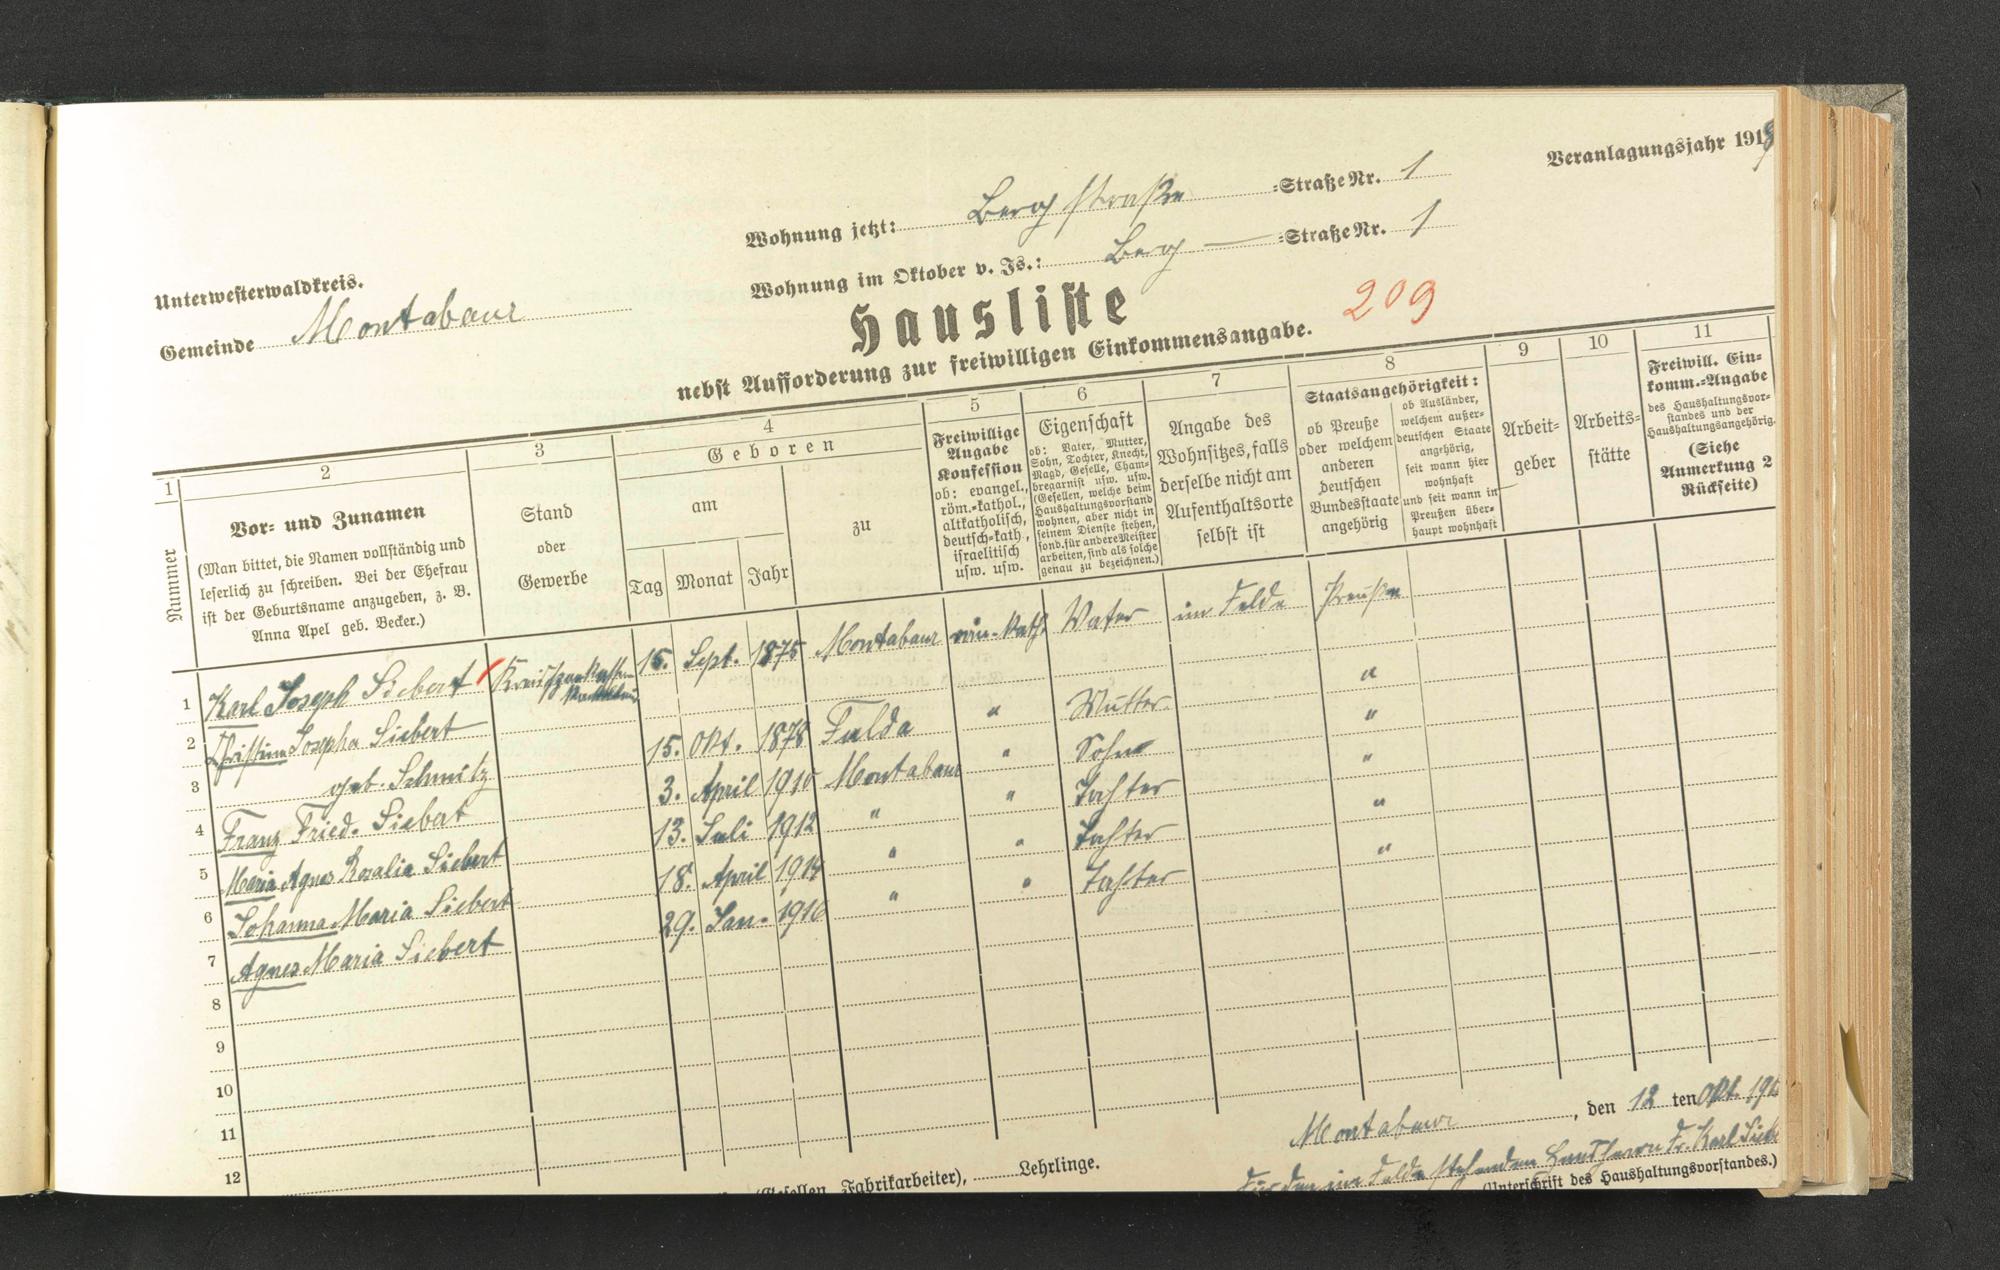 Veranlagungsjahr 191
Wohnung jetzt: Bergstraße =Straße Nr. 1
Wohnung im Oktober v. Js.: Berg — =Straße Nr. 1
Unterwesterwaldkreis.
Gemeinde Montabaur
Hausliste
209
nebst Aufforderung zur freiwilligen Einkommensangabe.
1
Nummer
2
Vor- und Zunamen
(Man bittet, die Namen vollständig und
leserlich zu schreiben. Bei der Ehefrau
ist der Geburtsname anzugeben, z. B.
Anna Apel geb. Becker.)
3
Stand
oder
Gewerbe
4
Geboren
am
Tag Monat Jahr
zu
5
Freiwillige
Angabe
Konfession
ob: evangel.,
röm.-kathol.,
altkatholisch,
deutsch-kath.,
israelitisch
usw. usw.
6
Eigenschaft
ob: Vater, Mutter,
Sohn, Tochter, Knecht,
Magd, Geselle, Cham-
bregarnist usw. usw.
(Gesellen, welche beim
Haushaltungsvorstand
wohnen, aber nicht in
seinem Dienste stehen,
sond. für andere Meister
arbeiten, sind als solche
genau zu bezeichnen.)
7
Angabe des
Wohnsitzes, falls
derselbe nicht am
Aufenthaltsorte
selbst ist
8
Staatsangehörigkeit:
ob Preuße
oder welchem
anderen
deutschen
Bundesstaate
angehörig
ob Ausländer,
welchem außer-
deutschen Staate
angehörig,
seit wann hier
wohnhaft
und seit wann in
Preußen über-
haupt wohnhaft
9
Arbeit-
geber
10
Arbeits-
stätte
11
Freiwill. Ein-
komm.-Angabe
des Haushaltungsvor-
standes und der
Haushaltungsangehörig.
(Siehe
Anmerkung 2
Rückseite)
1 Karl Joseph Siebert 15. Sept. 1875 Montabaur röm.-kath. Vater im Felde Preußen
2 Josepha Siebert
3 geb. Schmitz 15. Okt. 1878 Fulda " Mutter "
4 Franz Fried. Siebert 3. April 1910 Montabaur " Sohn "
5 Maria Agnes Rosalia Siebert 13. Juli 1912 " " Tochter "
6 Johanna Maria Siebert 18. April 1914 " " Tochter "
7 Agnes Maria Siebert 29. Jan. 1916 " " Tochter "
8
9
10
11
12
Montabaur, den 12 ten Okt. 191
Für den im Felde stehenden Hausherrn Fr. Karl Sieb
(Unterschrift des Haushaltungsvorstandes.)
(Gesellen, Fabrikarbeiter), Lehrlinge.